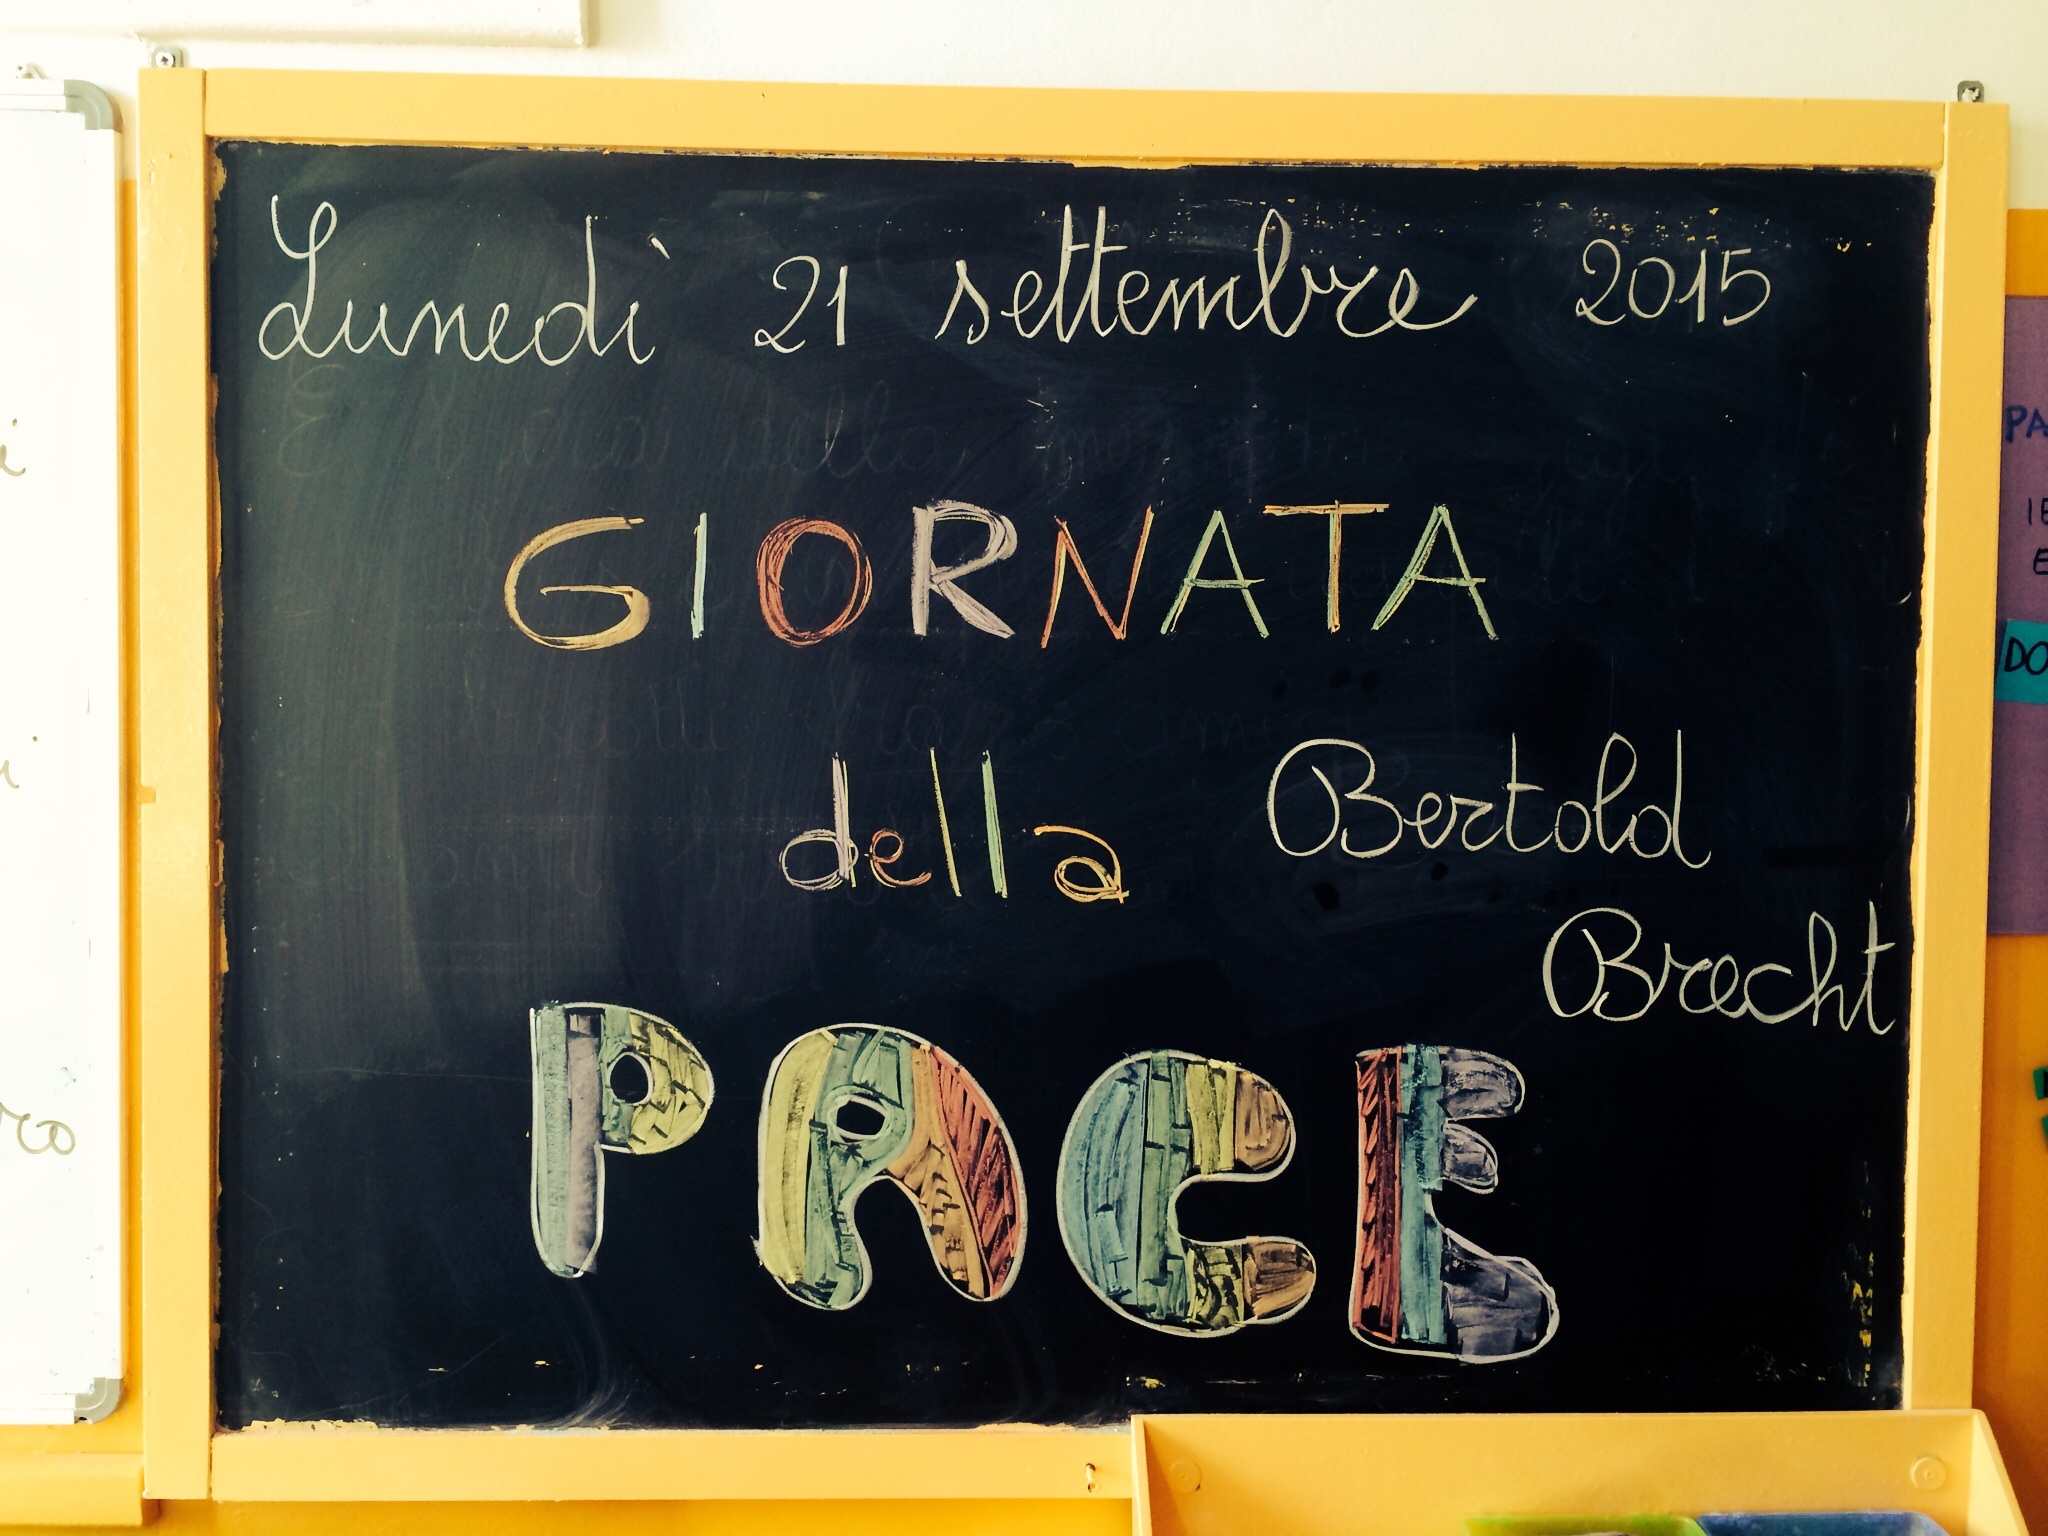 Lunedì 21 settembre 2015
GIORNATA
della
Bertold
Brecht
PACE
PA
DO